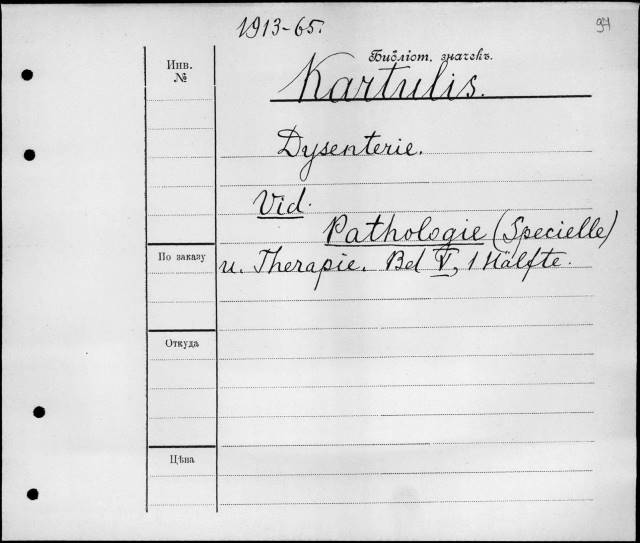 1913-65.
94
Библіот. значекъ.
Инв.
№
Kartulis.
Dysenterie.
Vid.
Pathologie (Specielle)
По заказу
u. Therapie. Bd V, 1 Hälfte.
Откуда
Цѣна